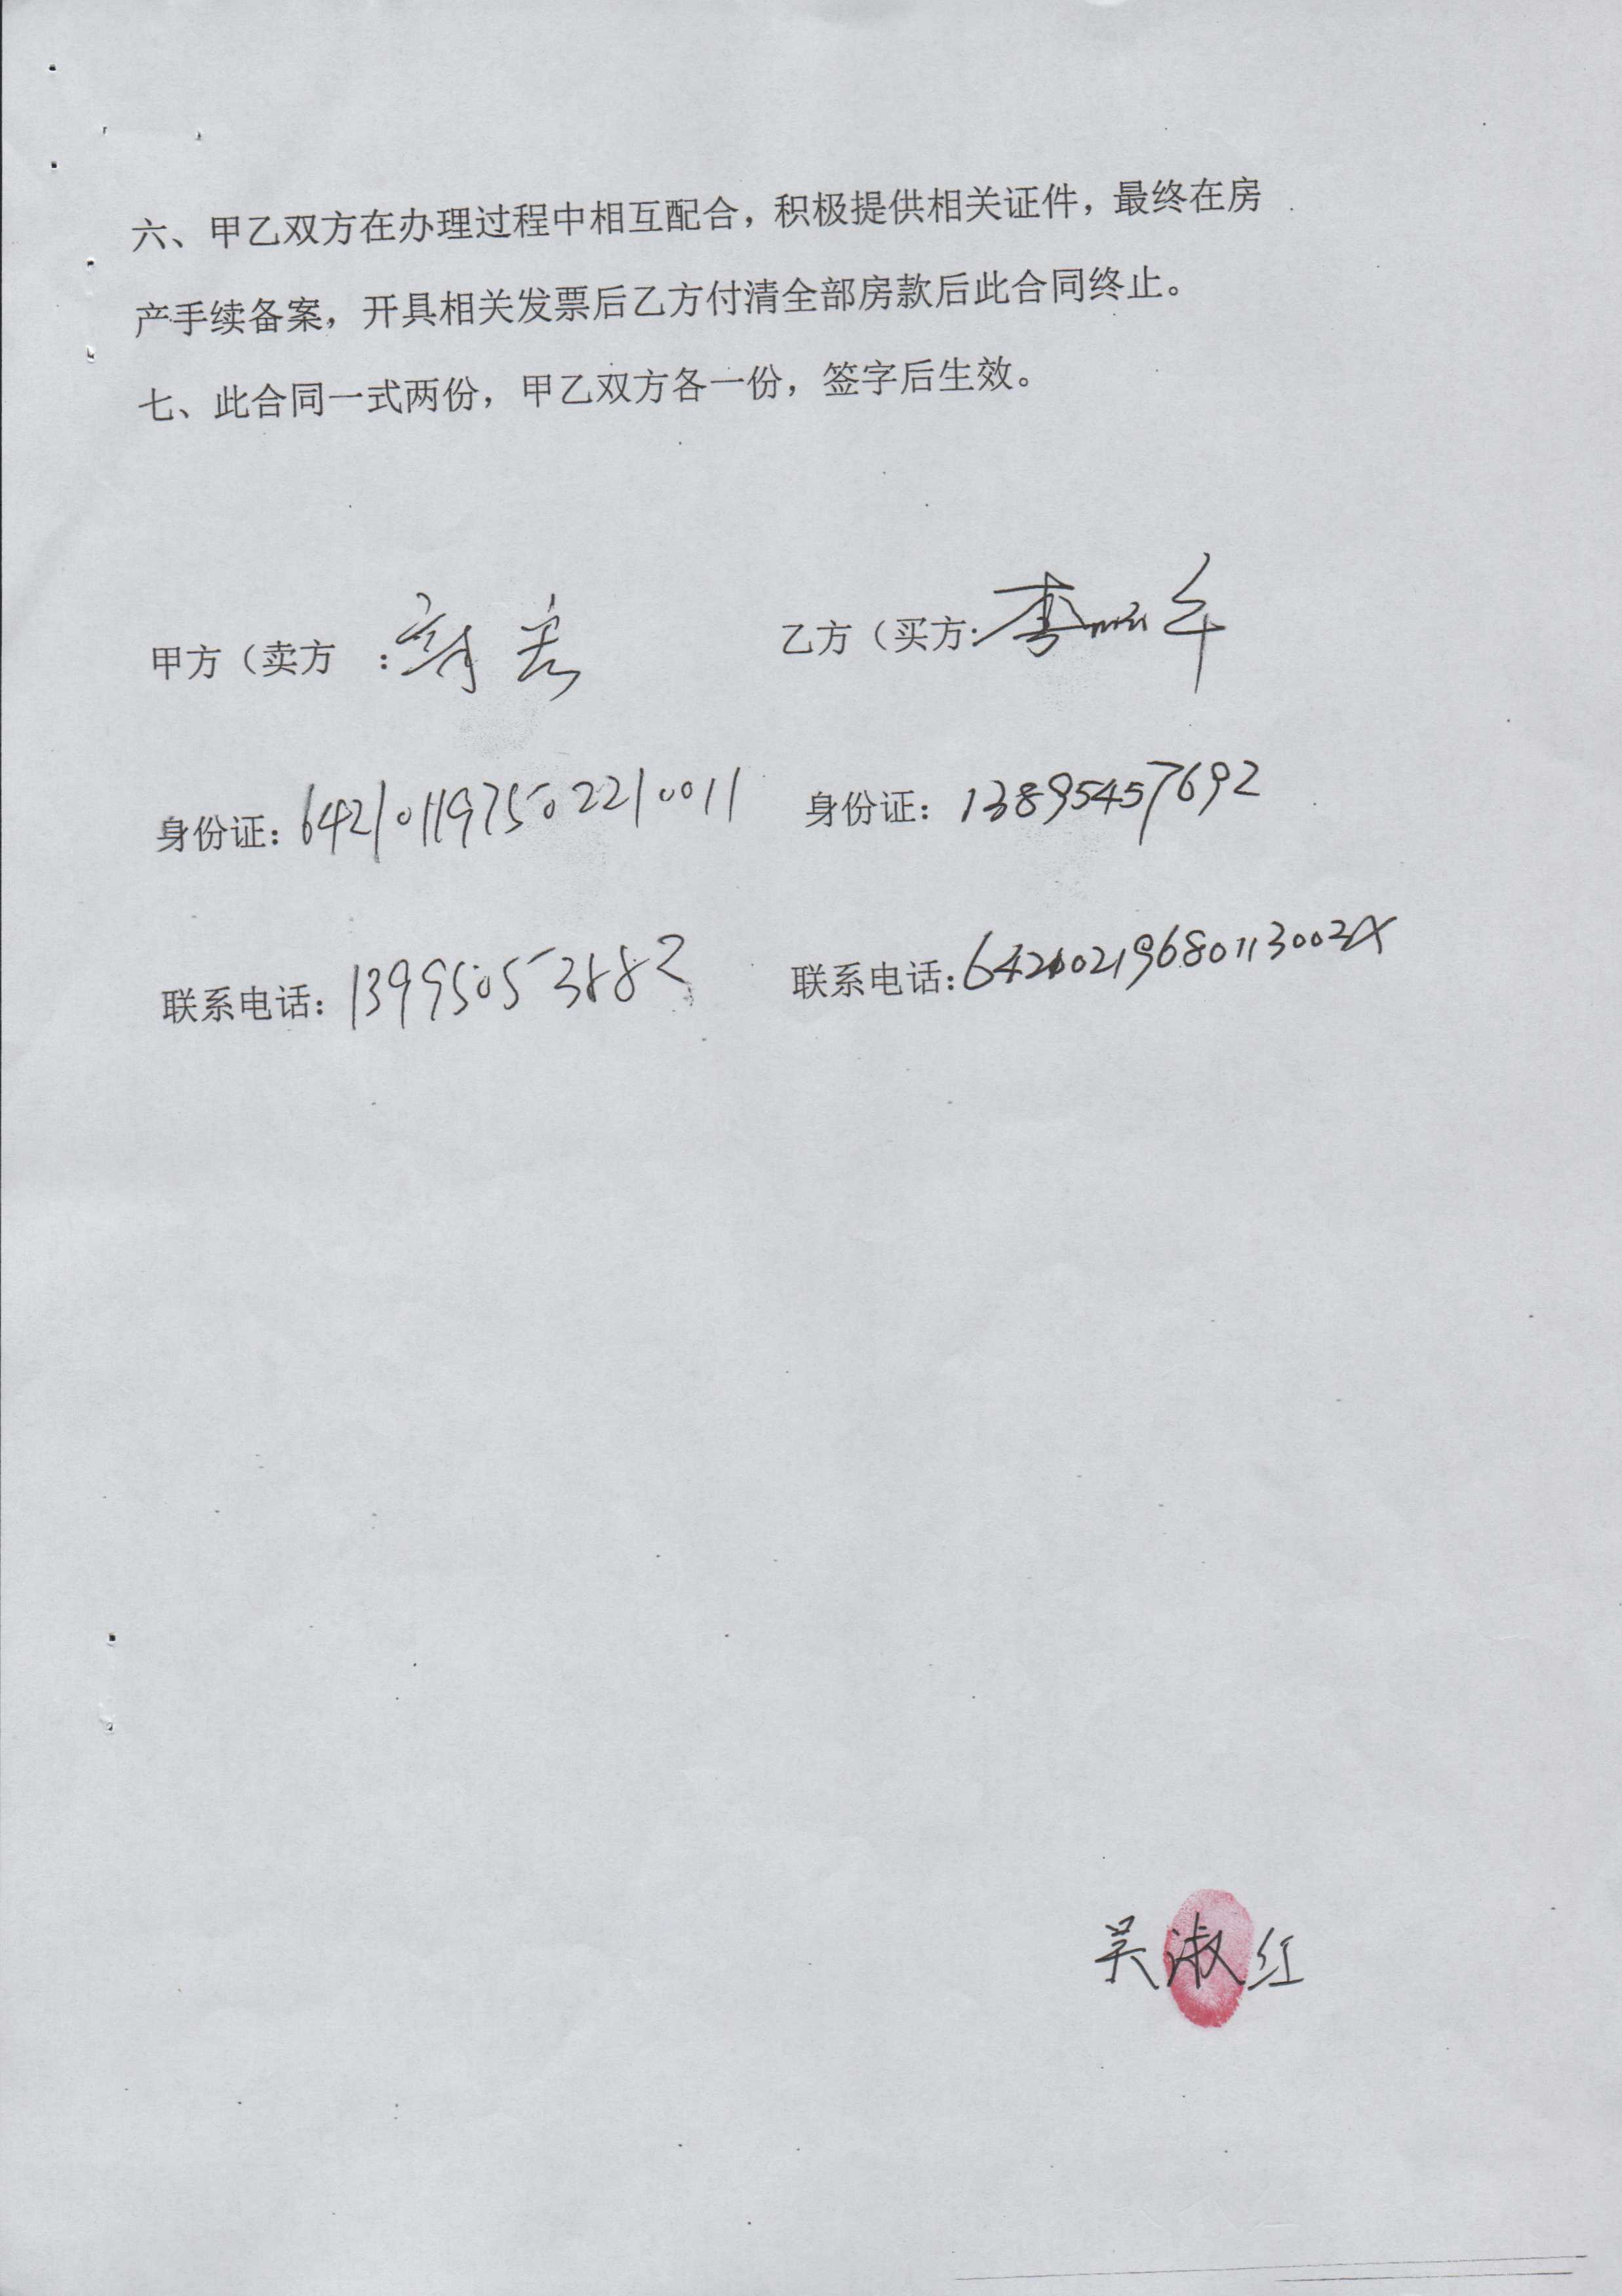 六、甲乙双方在办理过程中相互配合，积极提供相关证件，最终在房
产手续备案，开具相关发票后乙方付清全部房款后此合同终止。
七、此合同一式两份，甲乙双方各一份，签字后生效。
甲方（卖方 ： 乙方（买方: 李
身份证：642101197502210011 身份证：13895457692
联系电话：13995053882 联系电话:642100219680113003X
吴淑红